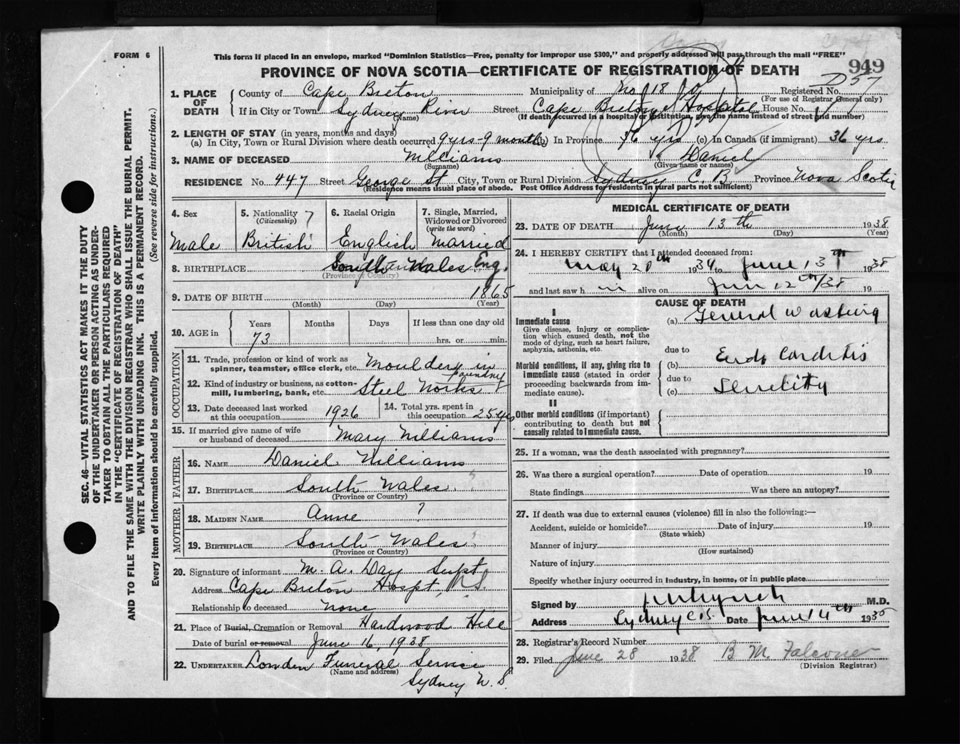 FORM 6
This form if placed in an envelope, marked "Dominion Statistics—Free, penalty for improper use $300," and properly addressed will pass through the mail "FREE"
PROVINCE OF NOVA SCOTIA—CERTIFICATE OF REGISTRATION OF DEATH
949
D57
1. PLACE OF DEATH
County of Cape Breton Municipality of No 18 Registered No.
(For use of Registrar General only)
If in City or Town Sydney River Street Cape Breton Hospital House No.
(Name) (If death occurred in a hospital or institution, give the name instead of street and number)
2. LENGTH OF STAY (in years, months and days)
(a) In City, Town or Rural Division where death occurred 9 yrs-9 months (b) In Province 36 yrs (c) In Canada (if immigrant) 36 yrs
3. NAME OF DECEASED Williams Daniel
(Surname) (Given name or names)
RESIDENCE No. 447 Street George St City, Town or Rural Division Sydney C. B. Province Nova Scotia
(Residence means usual place of abode. Post Office Address for residents in rural parts not sufficient)
4. Sex Male
5. Nationality (Citizenship) British
6. Racial Origin English
7. Single, Married, Widowed or Divorced (write the word) Married
8. BIRTHPLACE South Wales Eng.
(Province or Country)
9. DATE OF BIRTH 1865
(Month) (Day) (Year)
10. AGE in Years Months Days If less than one day old
73 hrs. or min.
OCCUPATION
11. Trade, profession or kind of work as spinner, teamster, office clerk, etc. Moulder in
12. Kind of industry or business, as cotton-mill, lumbering, bank, etc. Steel Works
13. Date deceased last worked at this occupation 1926
14. Total yrs. spent in this occupation 25 yrs
15. If married give name of wife or husband of deceased Mary Williams
FATHER
16. NAME Daniel Williams
17. BIRTHPLACE South Wales
(Province or Country)
MOTHER
18. MAIDEN NAME Anne ?
19. BIRTHPLACE South Wales
(Province or Country)
20. Signature of informant M. A. Day Supt
Address Cape Breton Hospt. N.S.
Relationship to deceased none
21. Place of Burial, Cremation or Removal Hardwood Hill
Date of burial or removal June 16, 1938
22. UNDERTAKER Funeral Service
(Name and address)
Sydney N.S.
MEDICAL CERTIFICATE OF DEATH
23. DATE OF DEATH June 13th 1938
(Month) (Day) (Year)
24. I HEREBY CERTIFY that I attended deceased from:
May 20th 1934 to June 13th 1938
and last saw h im alive on June 12th/38 19
CAUSE OF DEATH
I
Immediate cause
Give disease, injury or complication which caused death, not the mode of dying, such as heart failure, asphyxia, asthenia, etc.
(a) General Wasting
due to
Morbid conditions, if any, giving rise to immediate cause (stated in order proceeding backwards from immediate cause).
(b) Endo Carditis
due to
(c) Senility
II
Other morbid conditions (if important) contributing to death but not causally related to immediate cause.
25. If a woman, was the death associated with pregnancy?
26. Was there a surgical operation? Date of operation 19
State findings Was there an autopsy?
27. If death was due to external causes (violence) fill in also the following:—
Accident, suicide or homicide? Date of injury 19
(State which)
Manner of injury
(How sustained)
Nature of injury
Specify whether injury occurred in industry, in home, or in public place
Signed by M.D.
Address Sydney C.B. Date June 14th 1938
28. Registrar's Record Number
29. Filed June 28 1938 B M Falconer
(Division Registrar)
SEC. 46—VITAL STATISTICS ACT MAKES IT THE DUTY
OF THE UNDERTAKER OR PERSON ACTING AS UNDER-
TAKER TO OBTAIN ALL THE PARTICULARS REQUIRED
IN THE "CERTIFICATE OF REGISTRATION OF DEATH"
AND TO FILE THE SAME WITH THE DIVISION REGISTRAR WHO SHALL ISSUE THE BURIAL PERMIT.
WRITE PLAINLY WITH UNFADING INK. THIS IS A PERMANENT RECORD.
Every item of information should be carefully supplied. (See reverse side for instructions.)